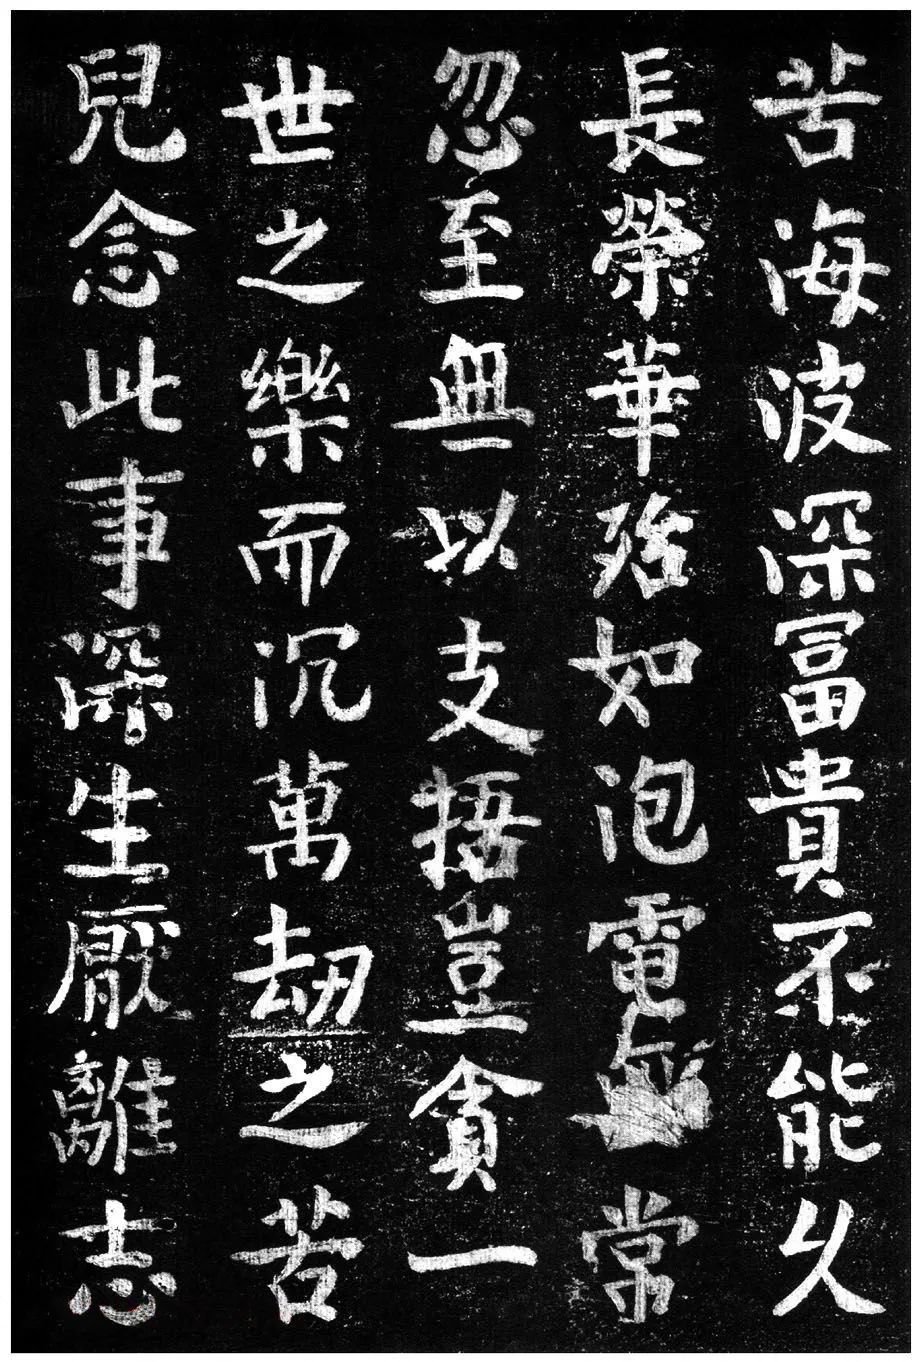 苦海波深冨貴不能久
長榮華殆如泡電無常
忽至無以支捂豈貪一
世之樂而沉萬劫之苦
兒念此事深生厭離志